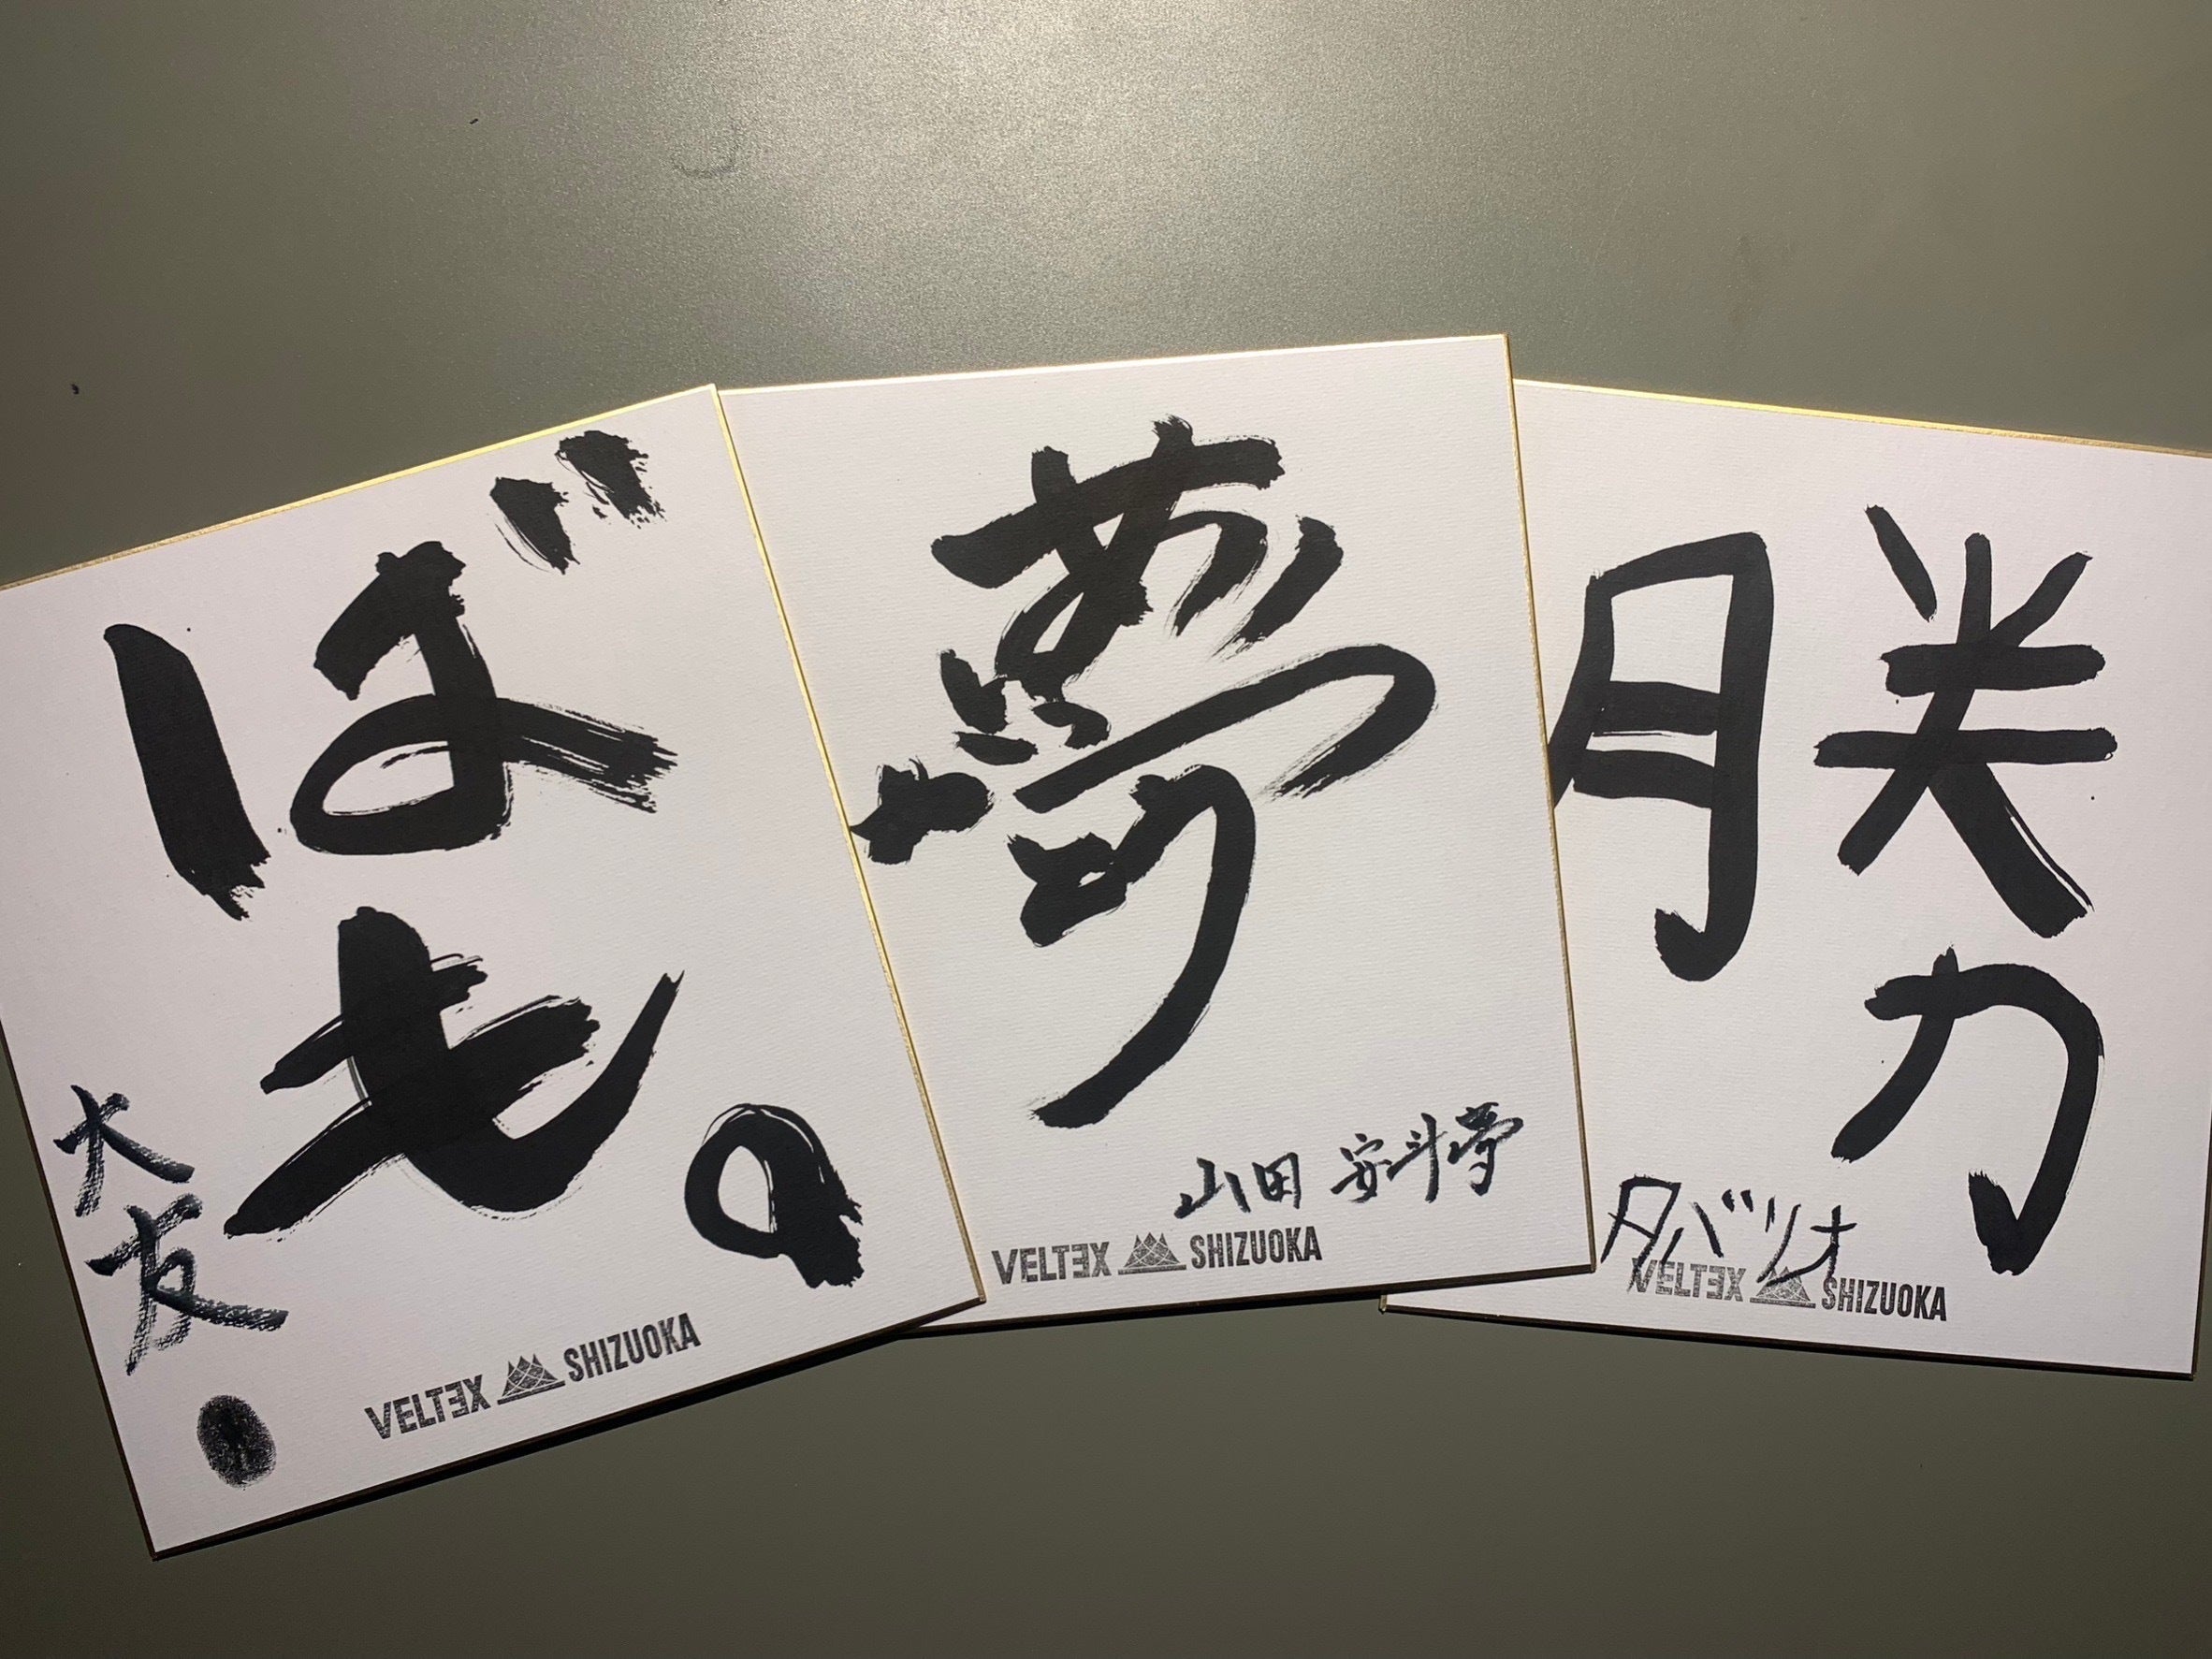 ばも。
大友
VELTEX SHIZUOKA
夢
山田 安斗夢
VELTEX SHIZUOKA
勝
タバツオ
VELTEX SHIZUOKA